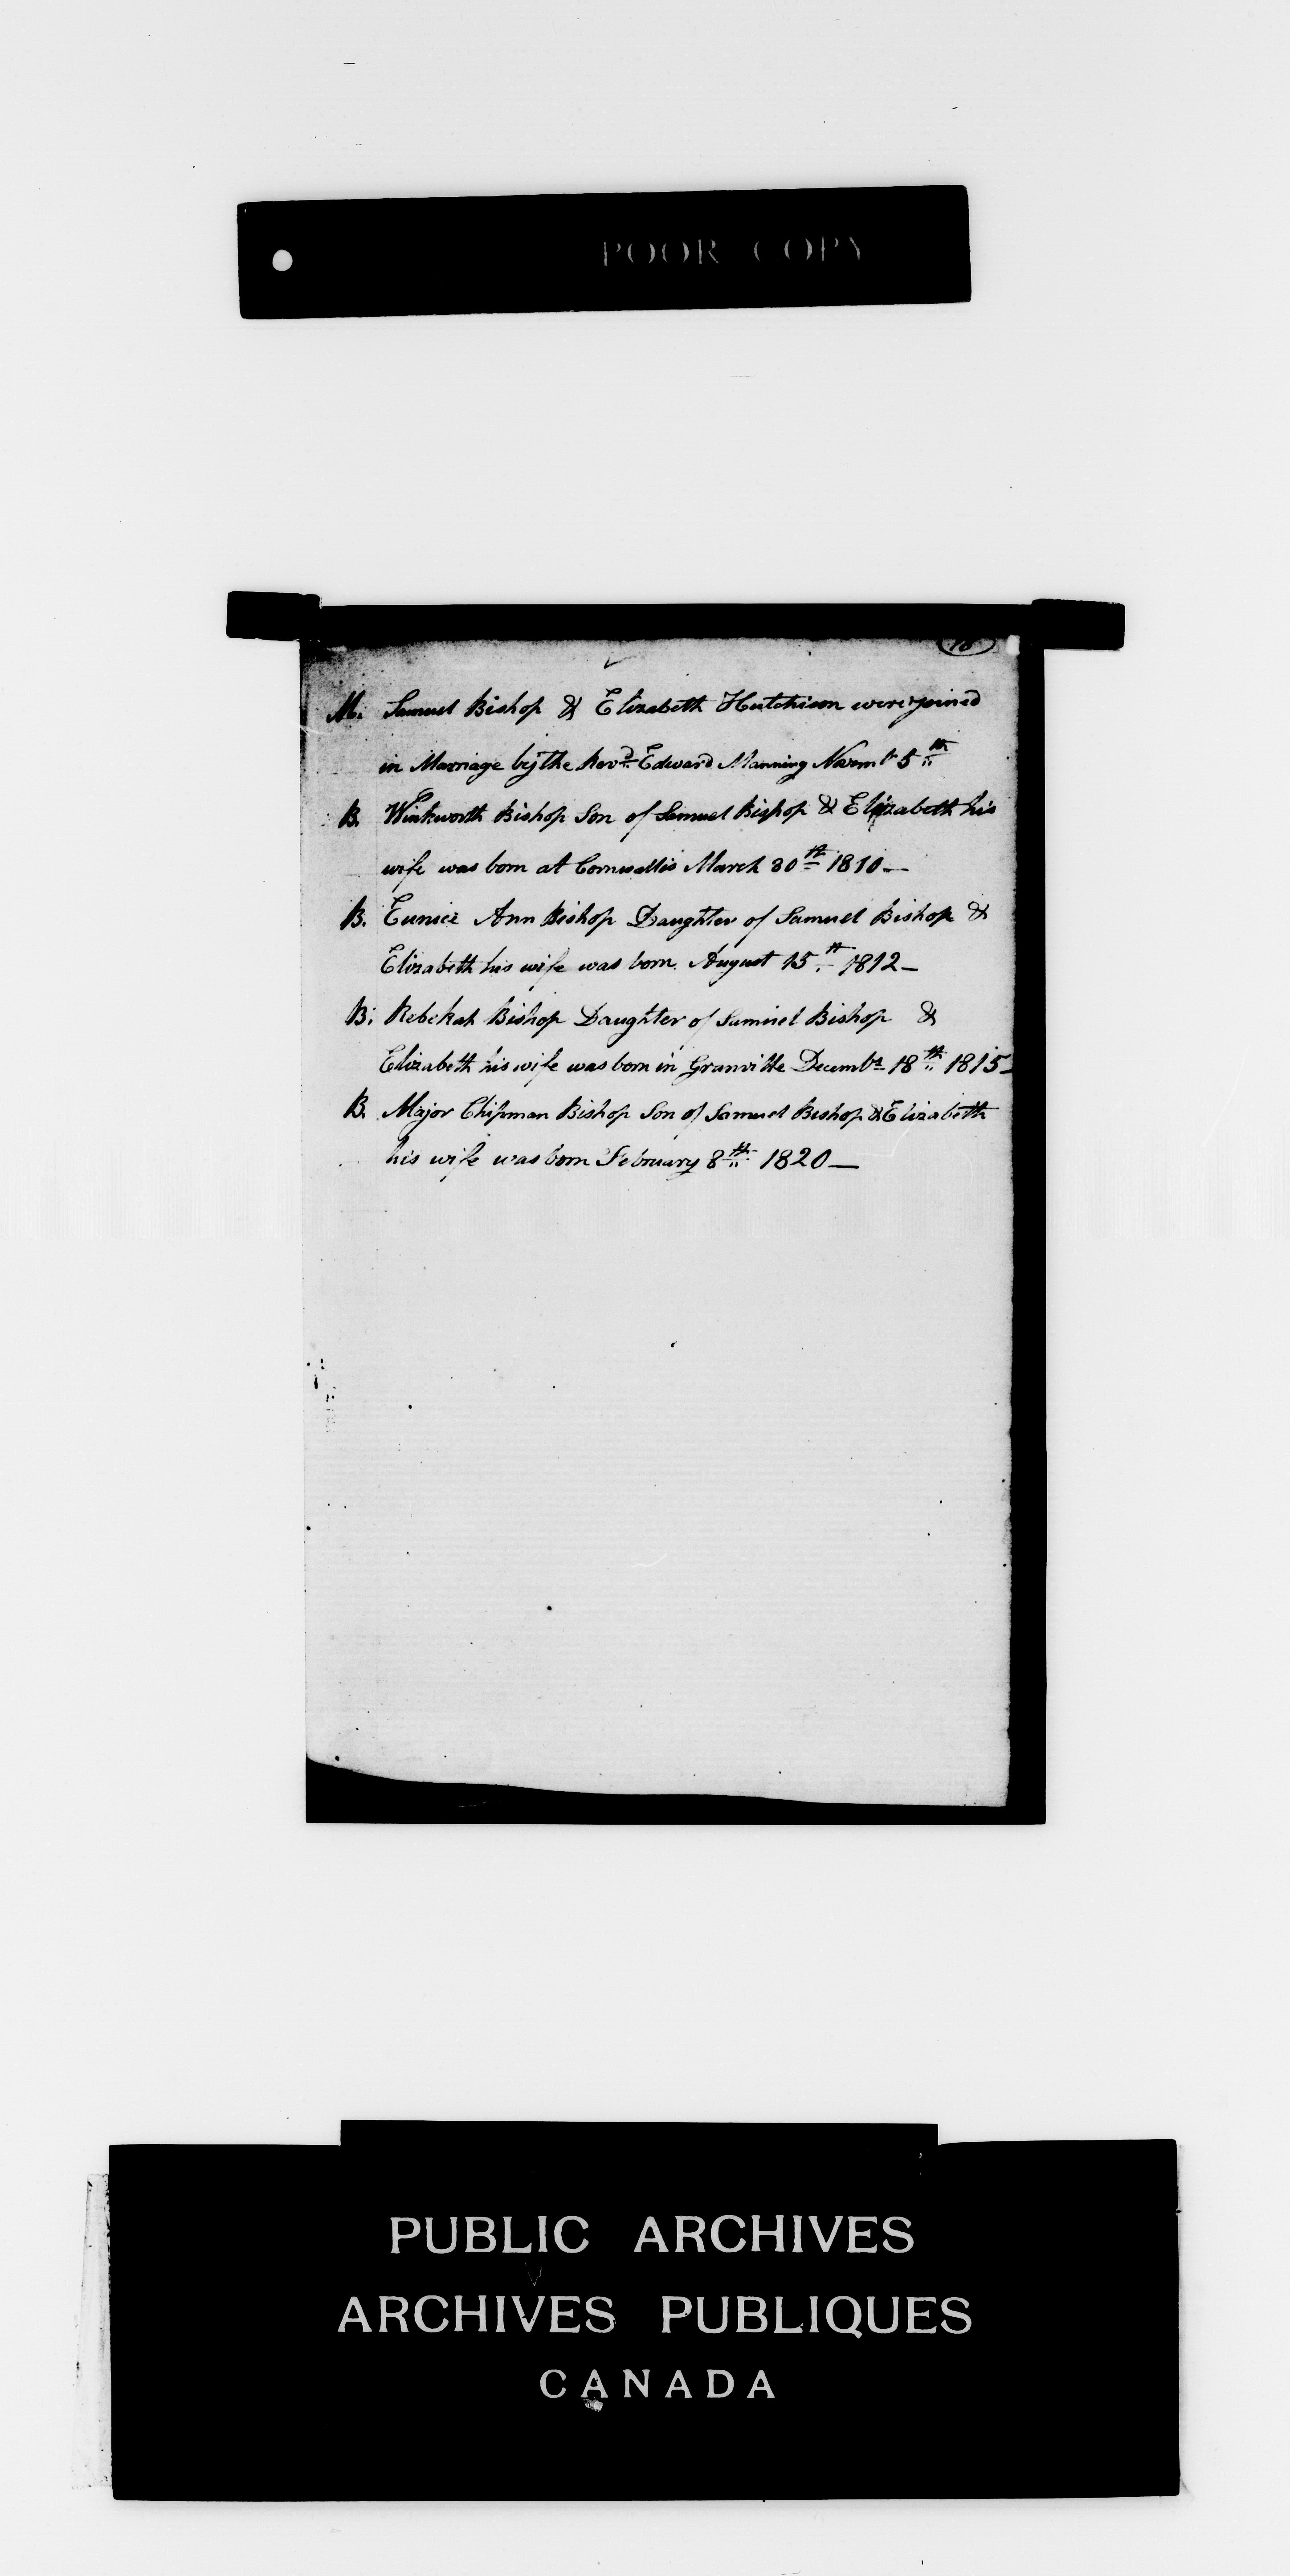 POOR COPY
M. Samuel Bishop & Elizabeth Hutchison were joined
in Marriage by the Revd. Edward Manning Novmbr 5th
B. Winkworth Bishop Son of Samuel Bishop & Elizabeth his
wife was born at Cornwallis March 30th 1810—
B. Eunice Ann Bishop Daughter of Samuel Bishop &
Elizabeth his wife was born August 15th 1812—
B. Rebekah Bishop Daughter of Samuel Bishop &
Elizabeth his wife was born in Granville Decembr 18th 1815—
B. Major Chipman Bishop Son of Samuel Bishop & Elizabeth
his wife was born February 8th 1820—
PUBLIC ARCHIVES
ARCHIVES PUBLIQUES
CANADA